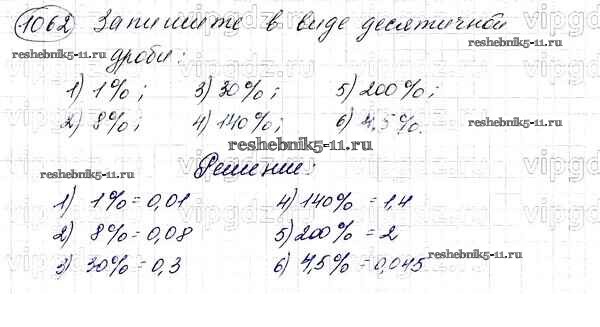 1062 Запишите в виде десятичной
reshebnik5-11.ru
дроби:
reshebnik5-11.ru
1) 1%; 3) 30%; 5) 200%;
2) 8%; 4) 140%; 6) 4,5%.
reshebnik5-11.ru
Решение:
reshebnik5-11.ru
1) 1% = 0,01 4) 140% = 1,4
2) 8% = 0,08 5) 200% = 2
reshebnik5-11.ru
3) 30% = 0,3 6) 4,5% = 0,045